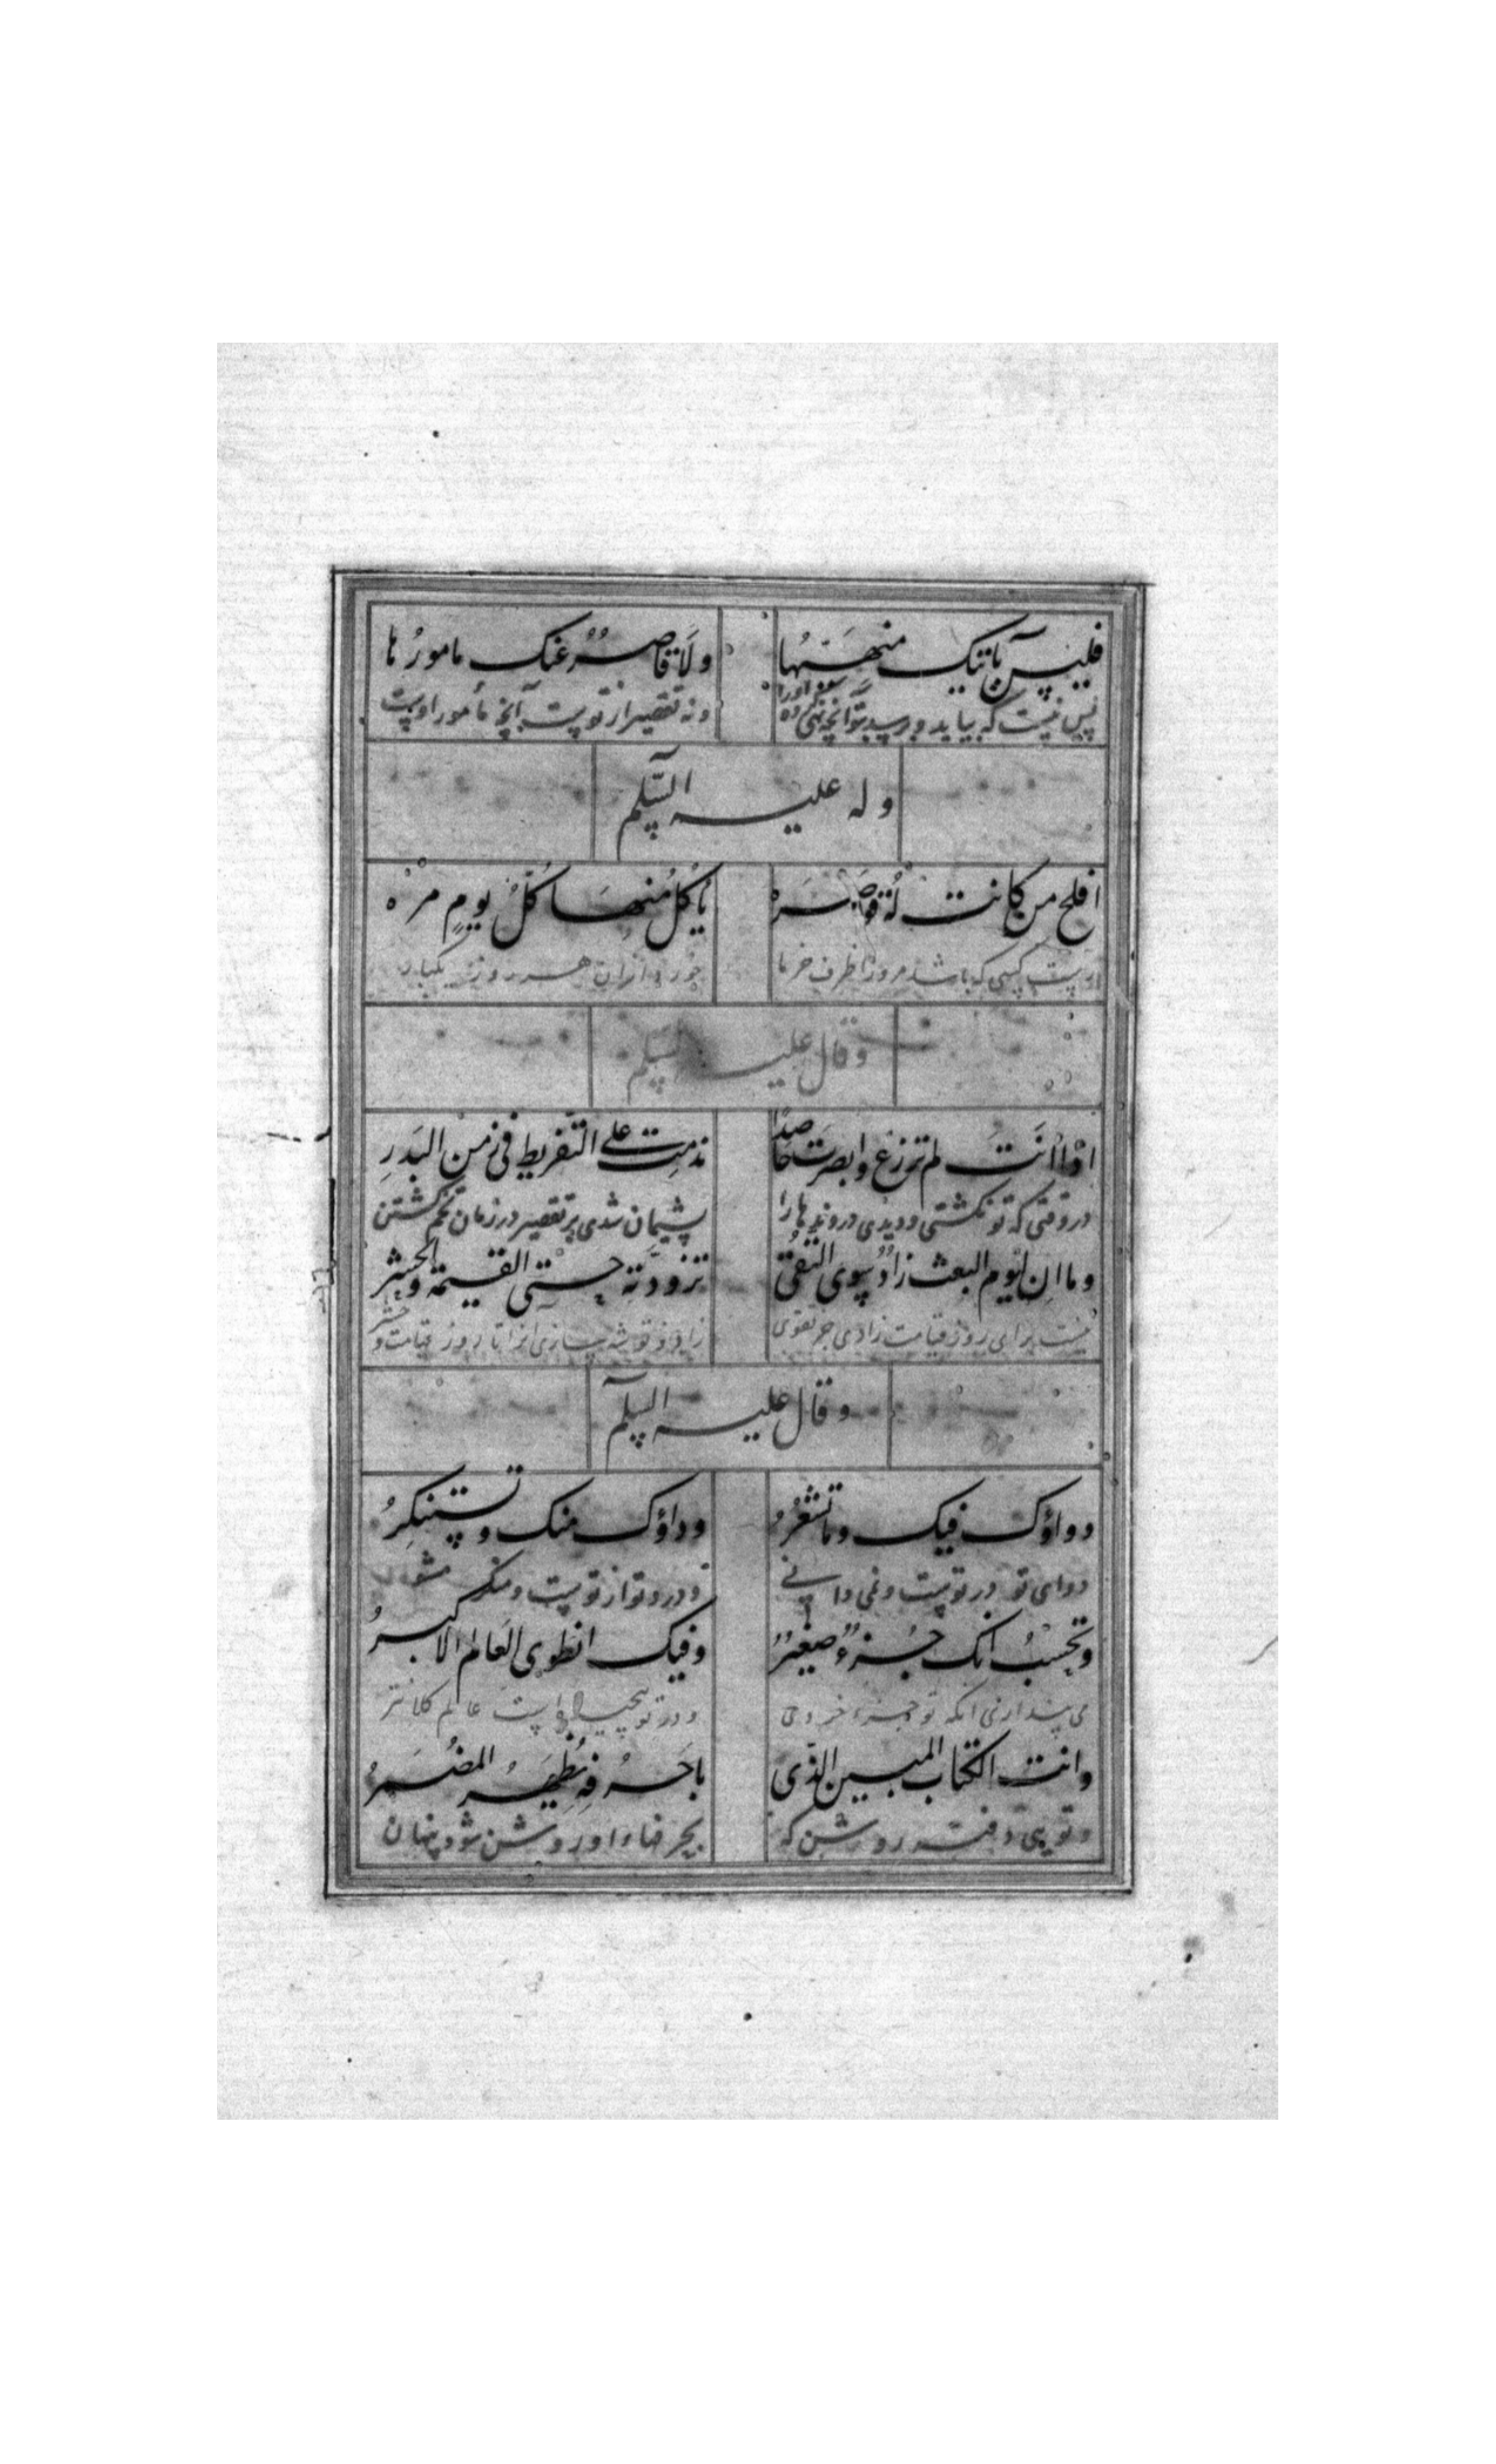 فلیس یاتیک منهیّها ولا قاصرٌ عنک مامورُها
پس نیست که بیاید و برسد بتو آنچه نهی کرده او را و نه تقصیر از تو است آنچه مأمور اوست
وله علیه السّلم
افلح من کانت له قوصره یاکل منها کلّ یومٍ مرّه
کسی که باشد مر او را ظرف خرما خورد از آن هر روز یکبار
وقال علیه السلم
اذا انت لم تزرع وابصرت حاصدا ندمت علی التّفریط فی زمن البذرِ
در وقتی که تو نکشتی و دیدی دروندها را پشیمان شدی بر تقصیر در زمان تخم کشتن
وما ان لیوم البعث زادٌ سوی التقی تزودته حتی القیمة والحشر
نیست برای روز قیامت زادی جز تقوی زاد و توشه سازی آنرا تا روز قیامت و حشر
وقال علیه السلم
دواؤک فیک وما تشعُرُ وداؤک منک وتستنکِرُ
دوای تو در توست و نمی دانی و درد تو از توست و منکر مشو
وتحسبُ انک جُزءٌ صغیرٌ وفیک انطوی العالم الاکبرُ
می پنداری انکه تو جزء خردی و در تو پیچیده است عالم کلانتر
وانت الکتاب المبین الذی باحرفه یُظهَرُ المضمَرُ
و تویی دفتر روشن که بحرفهاء او روشن شود پنهان